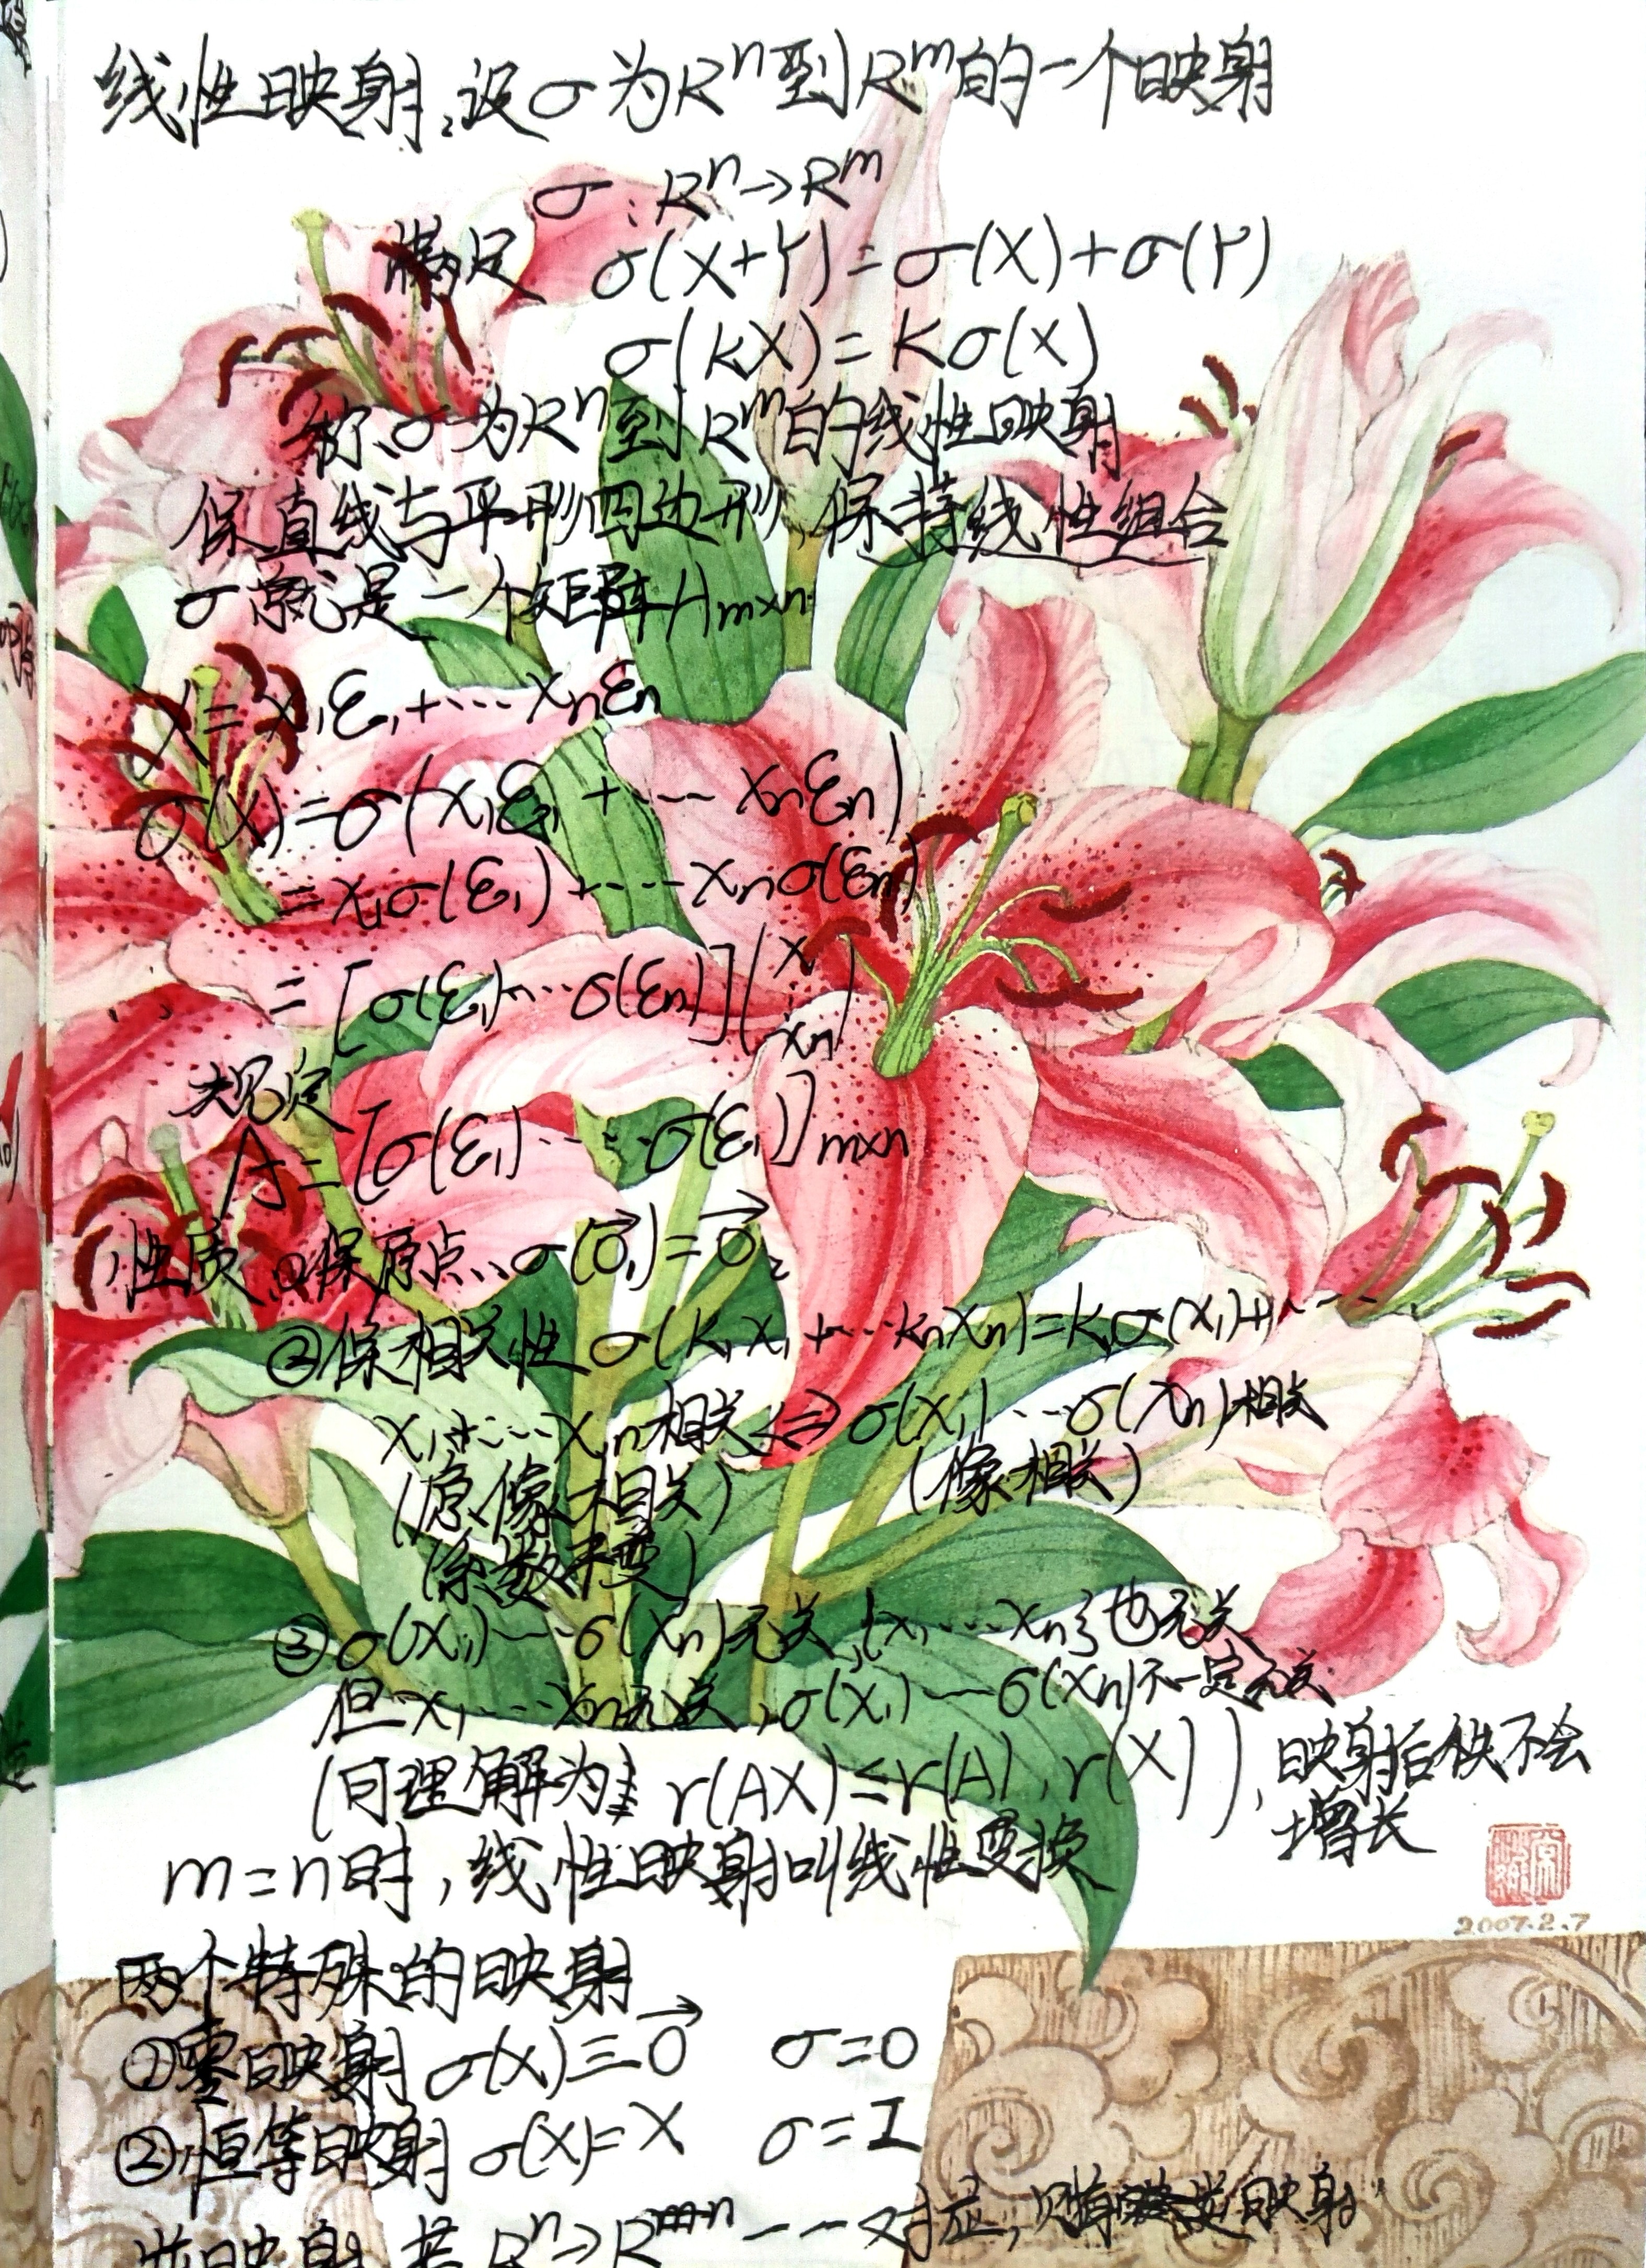 线性映射:设σ为Rⁿ到Rᵐ的一个映射
σ:Rⁿ→Rᵐ
满足 σ(X+Y)=σ(X)+σ(Y)
σ(kX)=Kσ(X)
称σ为Rⁿ到Rᵐ的线性映射
保直线与平形四边形,保持线性组合
σ就是一个矩阵Aₘₓₙ
X=x₁ε₁+···xₙεₙ
σ(X)=σ(x₁ε₁+···xₙεₙ)
=x₁σ(ε₁)+···xₙσ(εₙ)
=[σ(ε₁)···σ(εₙ)](x⋮xₙ)
规定
A=[σ(ε₁)·····σ(ε₁)]ₘₓₙ
性质 ①保原点 σ(0⃗₁)=0⃗₂
②保相关性 σ(k₁x₁+···kₙxₙ)=k₁σ(x₁)+·····
x₁+···xₙ相关⇔σ(x₁)···σ(xₙ)相关
(原像相关) (像相关)
(系数不变)
③σ(X₁)····σ(Xₙ)无关,{x₁····xₙ}也无关
但x₁····xₙ无关,σ(x₁)—σ(xₙ)不一定无关
(可理解为 r(AX)≤r(A),r(X)),映射后秩不会
增长
m=n时,线性映射叫线性变换
2007.2.7
两个特殊的映射
①零映射 σ(x)≡0⃗ σ=0
②恒等映射 σ(X)=X σ=I
逆映射 若Rⁿ→R 一一对应,则有逆映射